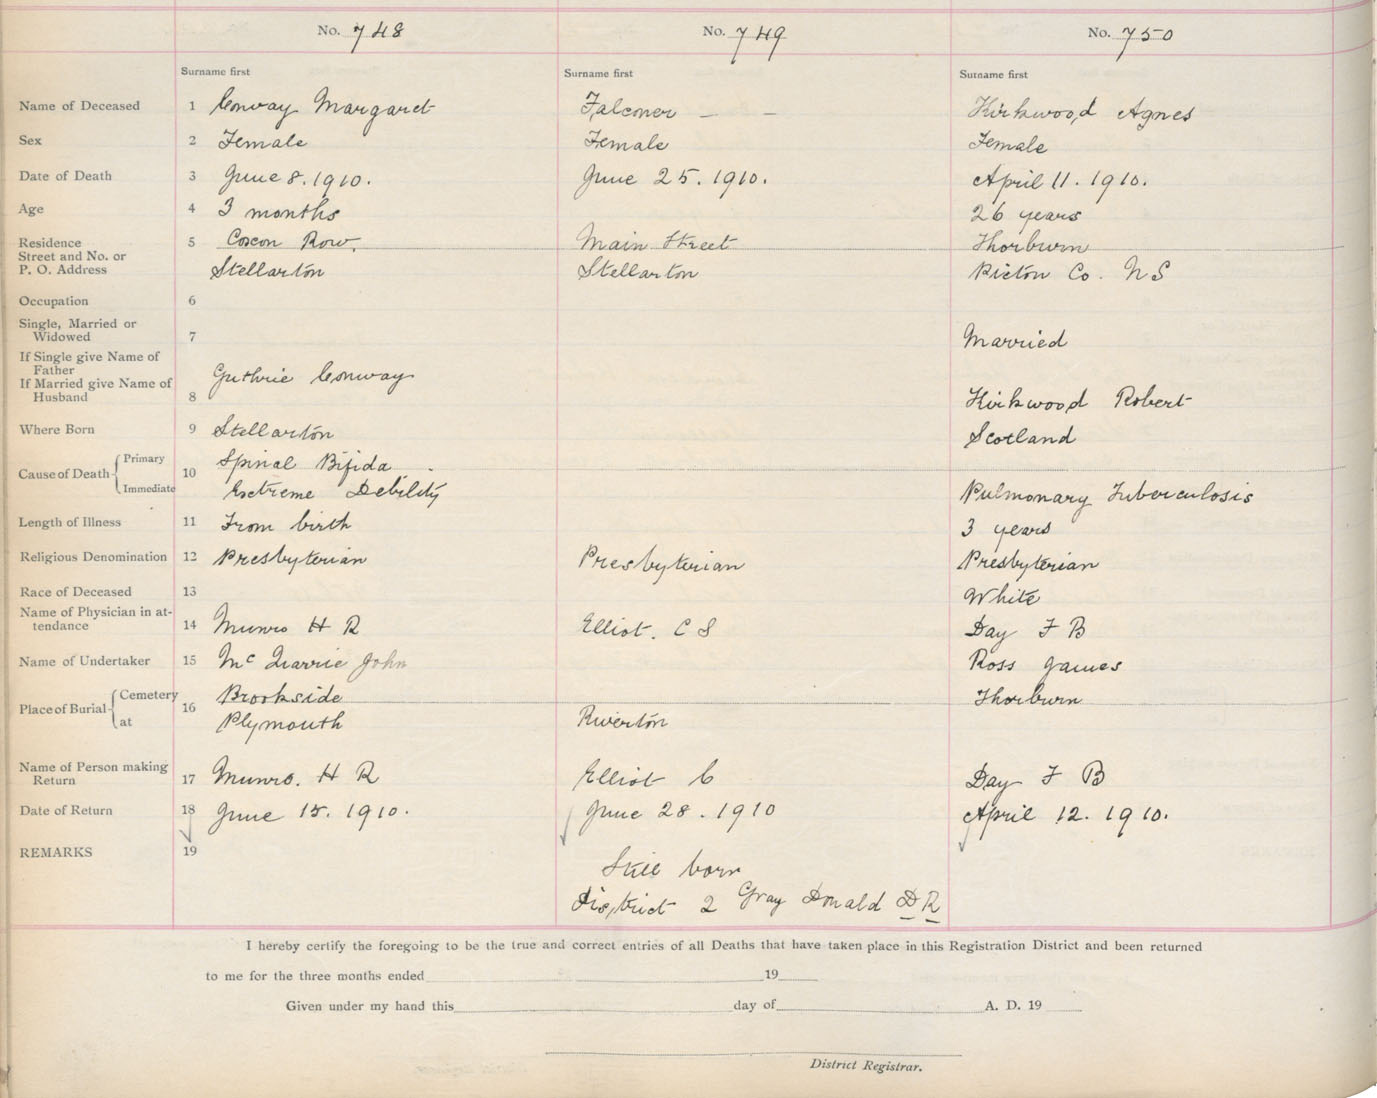 No. 748 No. 749 No. 750
Surname first Surname first Surname first
Name of Deceased 1 Conway Margaret Falconer — — Kirkwood Agnes
Sex 2 Female Female Female
Date of Death 3 June 8. 1910. June 25. 1910. April 11. 1910.
Age 4 3 months 26 years
Residence 5 Row. Main Street Thorburn
Street and No. or
P. O. Address Stellarton Stellarton Pictou Co. N S
Occupation 6
Single, Married or
Widowed 7 Married
If Single give Name of
Father Guthrie Conway
If Married give Name of
Husband 8 Kirkwood Robert
Where Born 9 Stellarton Scotland
Cause of Death 10 Primary Spinal Bifida
Immediate Extreme Debility Pulmonary Tuberculosis
Length of Illness 11 From birth 3 years
Religious Denomination 12 Presbyterian Presbyterian Presbyterian
Race of Deceased 13 White
Name of Physician in at-
tendance 14 Munro H R Elliot. C S Day F B
Name of Undertaker 15 Mc Quarrie John Ross James
Place of Burial 16 Cemetery Brookside Thorburn
at Plymouth Riverton
Name of Person making
Return 17 Munro. H R Elliot C Day F B
Date of Return 18 June 15. 1910. June 28. 1910 April 12. 1910.
REMARKS 19
Still born
District 2 Gray Donald D R
I hereby certify the foregoing to be the true and correct entries of all Deaths that have taken place in this Registration District and been returned
to me for the three months ended 19
Given under my hand this day of A. D. 19
District Registrar.